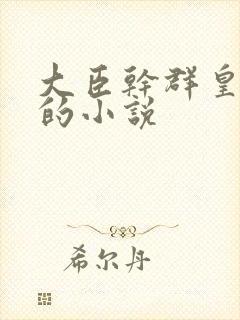 大臣幹群皇
的小説
希尔丹